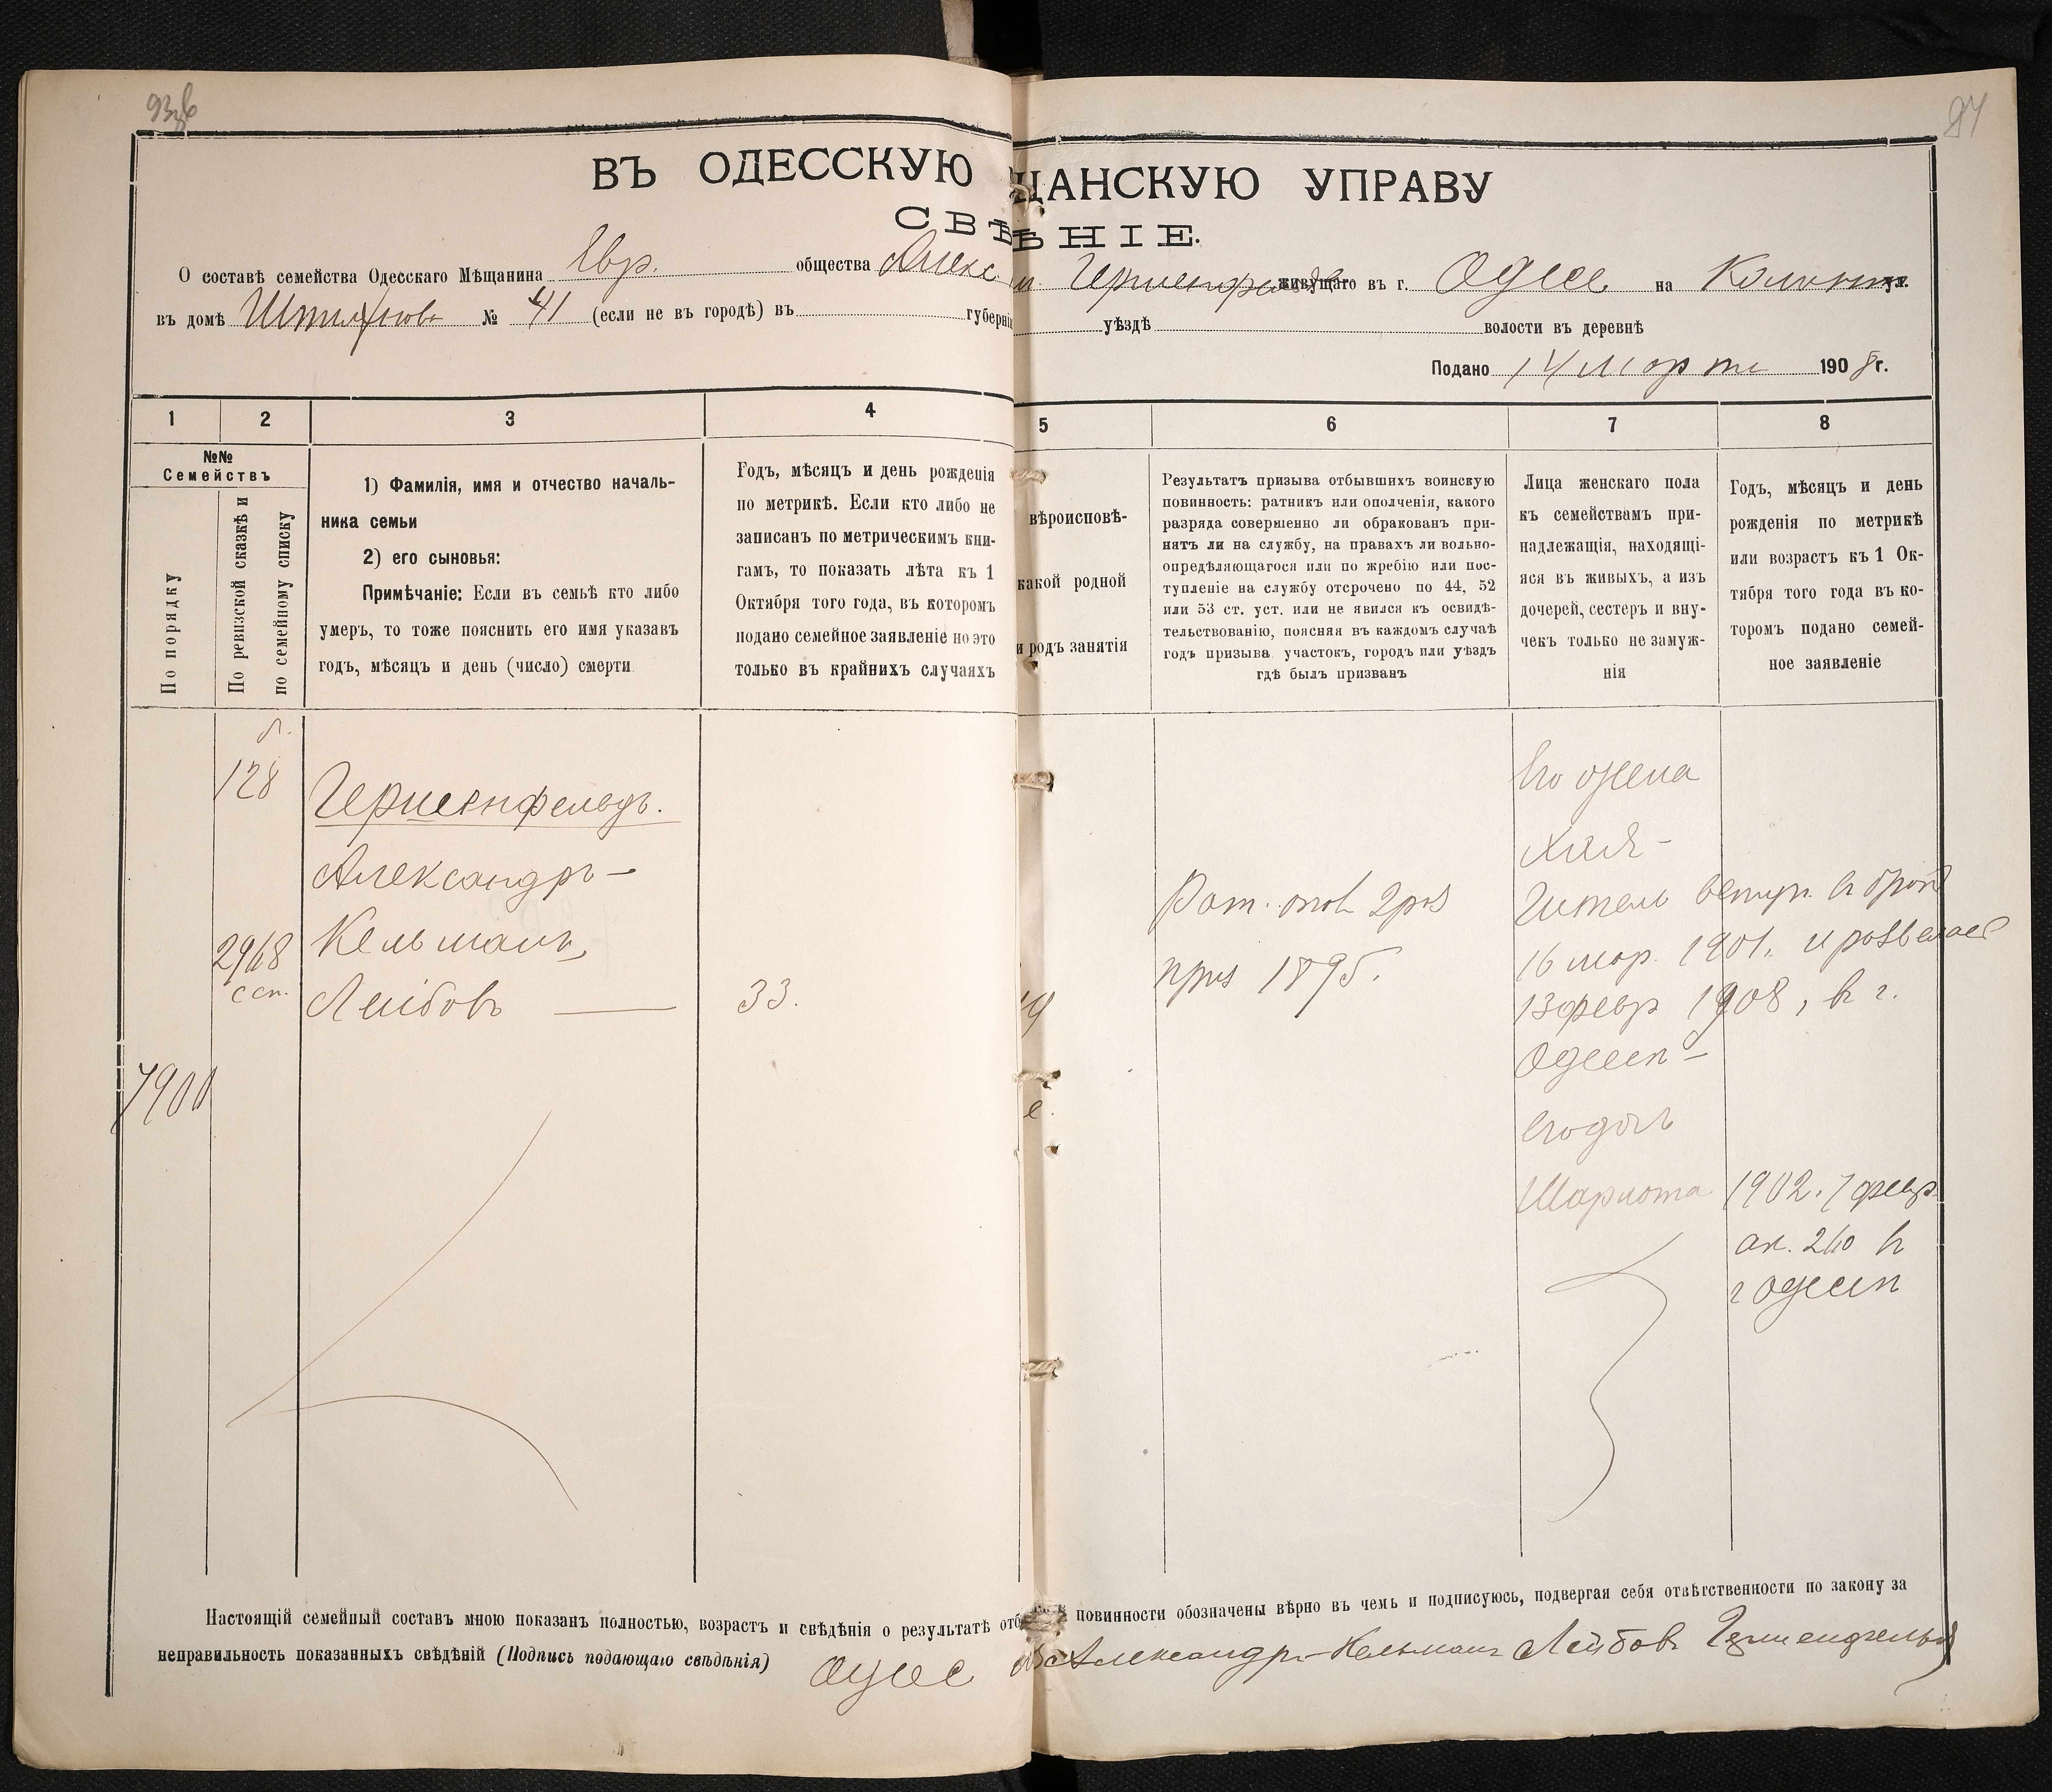 ВЪ ОДЕССКУЮ ЩАНСКУЮ УПРАВУ
СВѢ ѢНІЕ.
О составѣ семейства Одесскаго Мѣщанина Евр. общества Алекс живущаго въ г. Одессе на ул.
въ домѣ № 41 (если не въ городѣ) въ губерні уѣздѣ волости въ деревнѣ
Подано 14 марта 1908 г.
1 2 3 4 5 6 7 8
№№
Семействъ
По порядку
По ревизской сказкѣ и
по семейному списку
1) Фамилія, имя и отчество началь-
ника семьи
2) его сыновья:
Примѣчаніе: Если въ семьѣ кто либо
умеръ, то тоже пояснить его имя указавъ
годъ, мѣсяцъ и день (число) смерти
Годъ, мѣсяцъ и день рожденія
по метрикѣ. Если кто либо не
записанъ по метрическимъ кни-
гамъ, то показать лѣта къ 1
Октября того года, въ которомъ
подано семейное заявленіе но это
только въ крайнихъ случаяхъ
вѣроисповѣ-
какой родной
и родъ занятія
Результатъ призыва отбывшихъ воинскую
повинность: ратникъ или ополченія, какого
разряда совершенно ли обракованъ при-
нятъ ли на службу, на правахъ ли вольно-
опредѣляющагося или по жребію или пос-
тупленіе на службу отсрочено по 44, 52
или 53 ст. уст. или не явился къ освидѣ-
тельствованію, поясняя въ каждомъ случаѣ
годъ призыва участокъ, городъ или уѣздъ
гдѣ былъ призванъ
Лица женскаго пола
къ семействамъ при-
надлежащія, находящі-
яся въ живыхъ, а изъ
дочерей, сестеръ и вну-
чекъ только не замуж-
нія
Годъ, мѣсяцъ и день
рожденія по метрикѣ
или возрастъ къ 1 Ок-
тября того года въ ко-
торомъ подано семей-
ное заявленіе
128
Гершенфельдъ.
Александръ-
Кельманъ
2968
Лейбовъ 33.
7900
Рат. опол 2 раз
приз 1895.
Его жена
Хая-
Гитель вступ. въ брак
16 мар. 1901. и развелась
13 февр 1908, въ г.
Одессѣ-
Его дочь
Шарлота 1902. 7 февр.
ак. 260 въ
г Одессѣ
Настоящій семейный составъ мною показанъ полностью, возрастъ и свѣдѣнія о результатѣ отб повинности обозначены вѣрно въ чемъ и подписуюсь, подвергая себя отвѣтственности по закону за
неправильность показанныхъ свѣдѣній (Подпись подающаго свѣдѣнія) Одес Александръ-Кельманъ Лейбовъ Гершенфельд